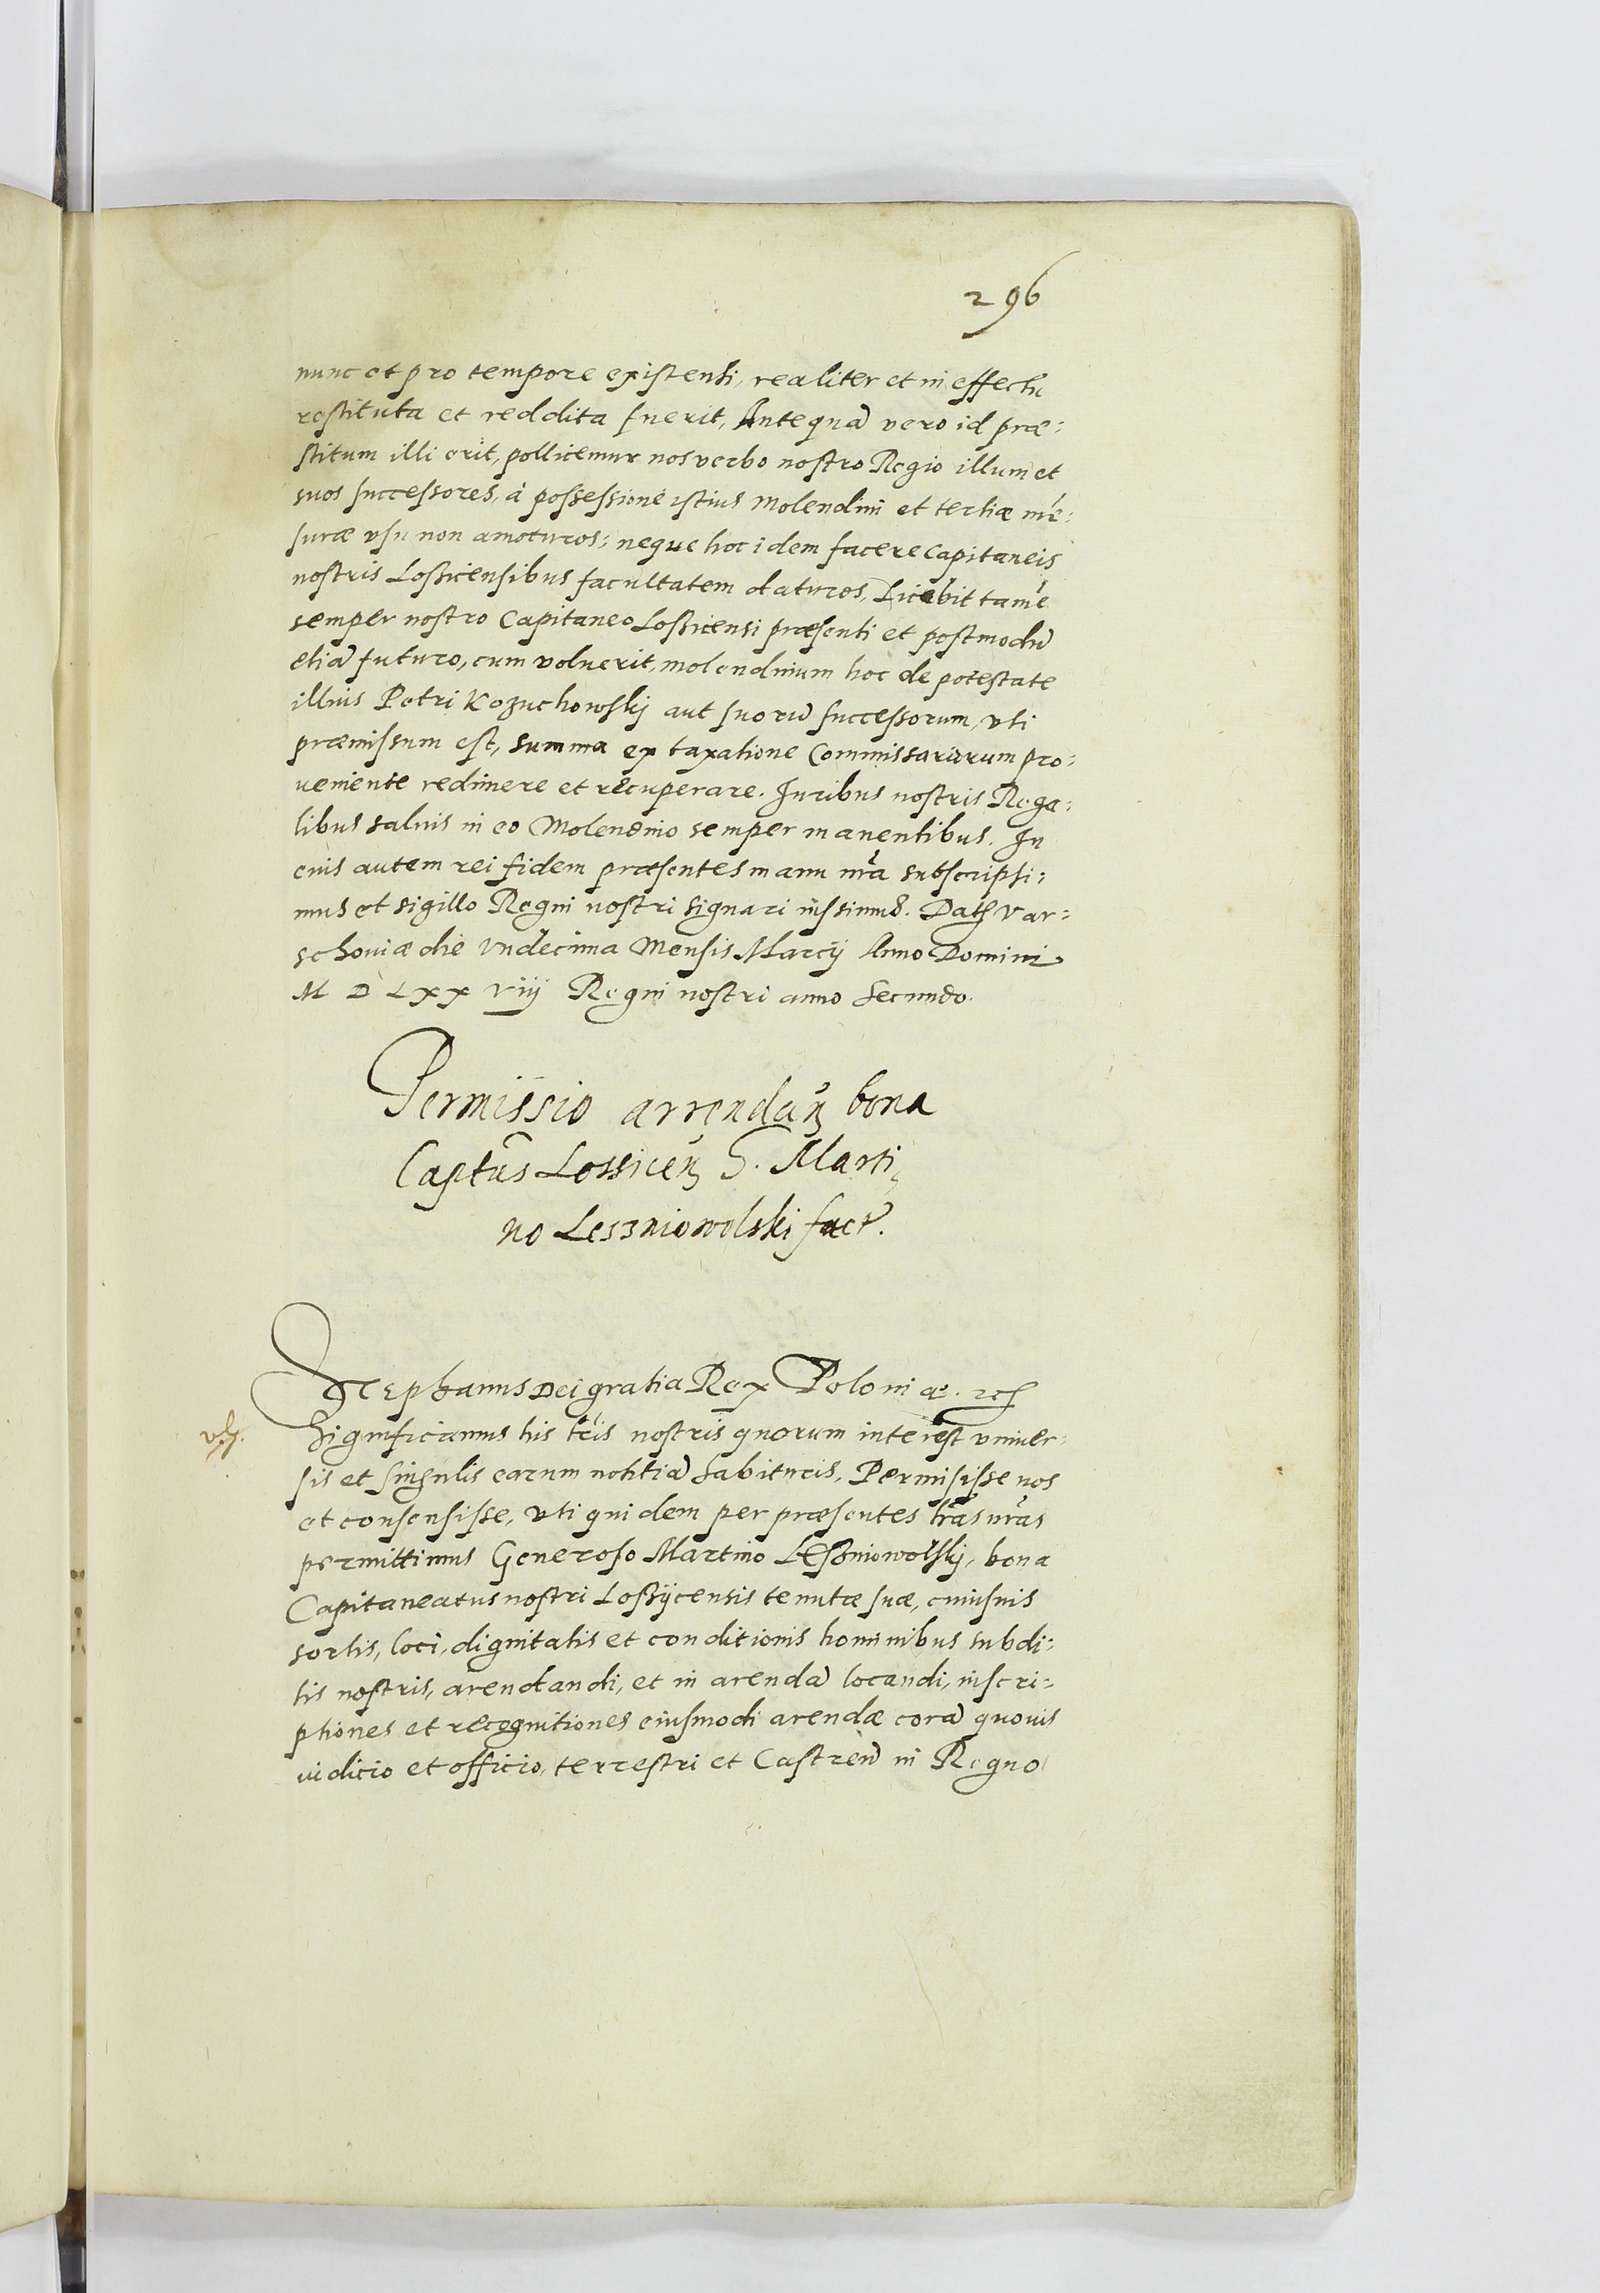 296
nunc et pro tempore existenti, realiter et in effectu
restituta et reddita fuerit, Antequã vero id præ:
stitum illi erit, pollicemur nos verbo nostro Regio illum et
suos successores, à possessione istius Molendini et tertiæ mẽ:
suræ usu non amoturos; neque hoc idem facere Capitaneis
nostris Lossicensibus facultatem daturos, Licebit tamẽ
semper nostro Capitaneo Lossicensi præsenti et postmodũ
etiã futuro, cum voluerit, molendinum hoc de potestate
illius Petri Kozuchowsky aut suorũ successorum, uti
præmissum est, summa ex taxatione Commissariorum pro:
veniente redimere et recuperare. Juribus nostris Rega:
libus salvis in eo Molendino semper manentibus. In
cuius autem rei fidem præsentes manu nrã subscripsi:
mus et sigillo Regni nostri signari iussimus. Datꝭ Var:
schoviæ die Undecima Mensis Marcij Anno Domini
M D LXX VIIJ Regni nostri anno Secundo.
Permissio arrendañ bona
Captũs Lossiceñ G. Marti,
no Leszniowolski fact.
Stephanus Dei gratia Rex Poloniæ. etc
Significamus his lr̃is nostris quorum interest univer:
sis et singulis earum notitiã habituris, Permisisse nos
et consensisse, uti quidem per præsentes lr̃as nr̃as
permittimus Generoso Martino Leßniowolsky, bona
Capitaneatus nostri Lossycensis tenutæ suæ, cuiusvis
sortis, loci, dignitatis et conditionis hominibus subdi:
tis nostris, arendandi, et in arendã locandi, inscri:
ptiones et recognitiones eiusmodi arendæ corã quovis
iudicio et officio, terrestri et Castreñ in Regno